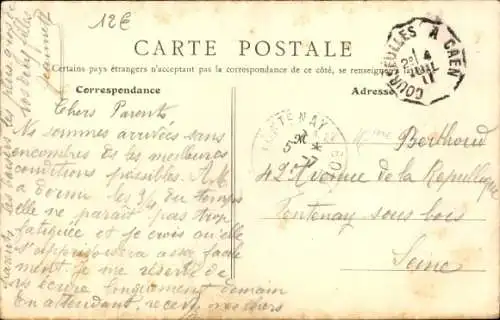 12€
CARTE POSTALE
Certains pays étrangers n'acceptant pas la correspondance de ce côté, se renseigner
Correspondance
Adresse
COURSEULLES A CAEN
4
JUIL
11
FONTENAY
BOIS
Chers Parents
Ns sommes arrivées sans
encombres ds les meilleures
conditions possibles. A M
a dormi les 3/4 du temps
elle ne paraît pas trop
fatiguée et je crois qu'elle
s'apprivoisera assez facile
ment. je me réserve de
vs écrire longuement demain
En attendant, recevez mes chers
parents les baisers les plus
vos
Mme Berthoud
42 Avenue de la République
Fontenay sous bois
Seine